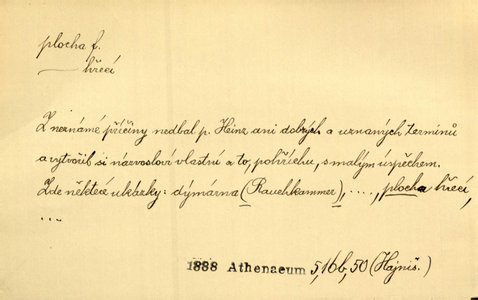 plocha f.
— hřecí
Z neznámé příčiny nedbal p. Heinz ani dobrých a uznaných termínů
a vytvořil si názvosloví vlastní a to, pohříchu, s malým úspěchem.
Zde některé ukázky: dýmárna (Rauchkammer), ...., plocha hřecí,
....
1888 Athenaeum 5, 166, 50 (Hajniš.)